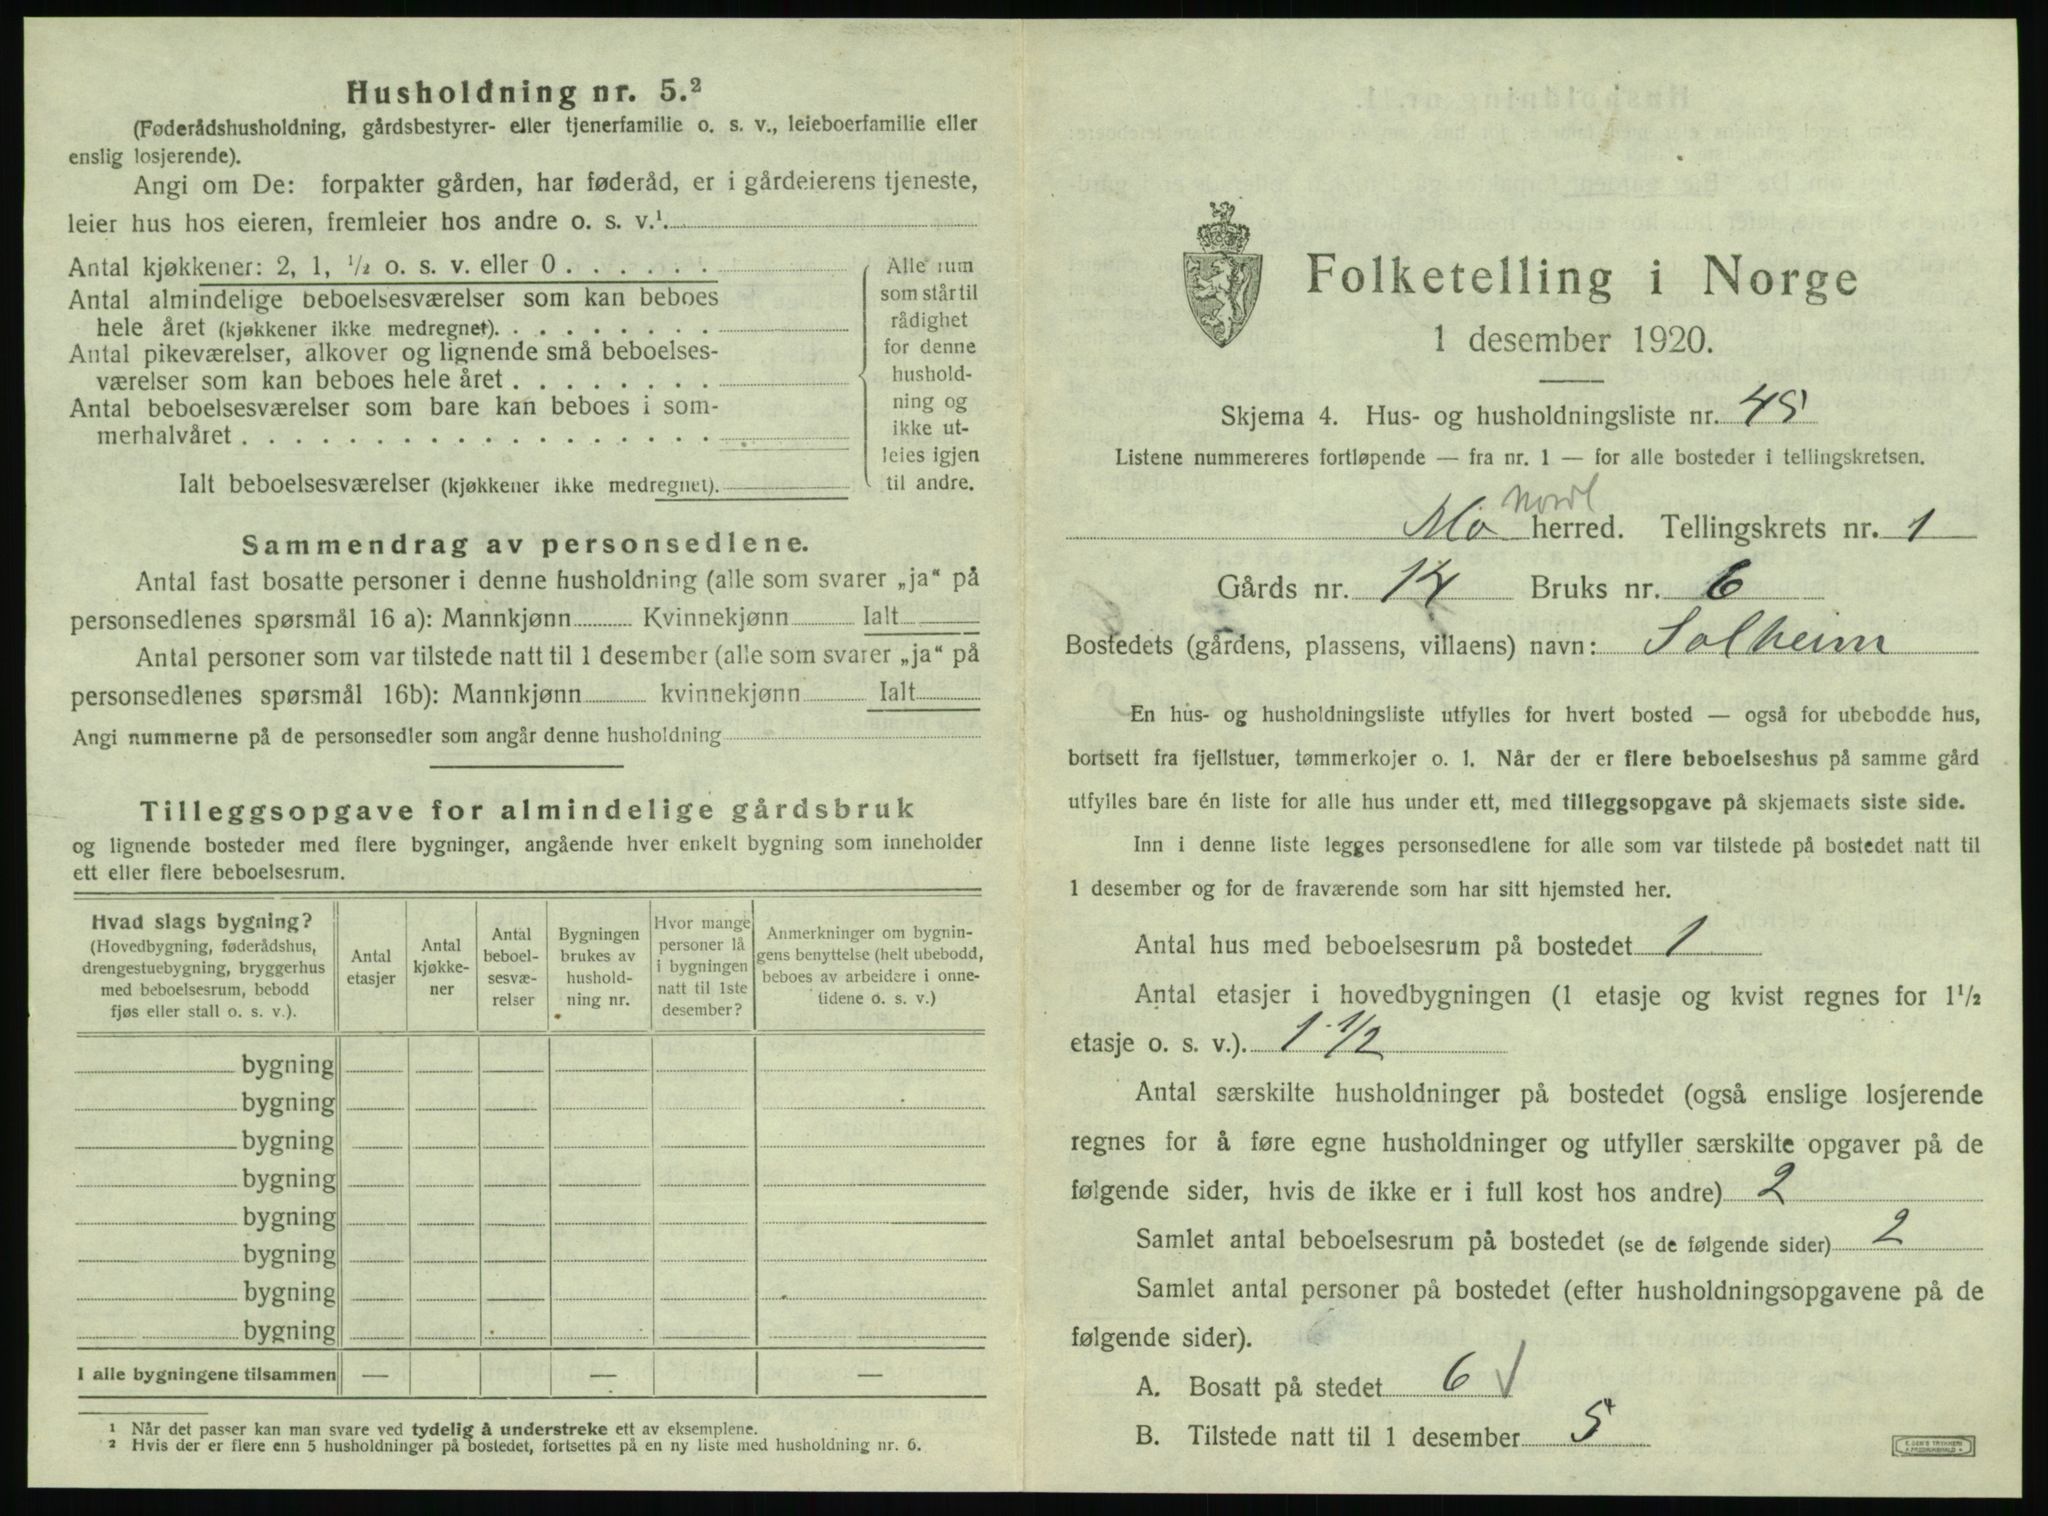 Husholdning nr. 5.²
(Føderådshusholdning, gårdsbestyrer- eller tjenerfamilie o. s. v., leieboerfamilie eller
enslig losjerende).
Angi om De: forpakter gården, har føderåd, er i gårdeierens tjeneste,
leier hus hos eieren, fremleier hos andre o. s. v.¹.
Antal kjøkkener: 2, 1, ½ o. s. v. eller 0 . . . . . .
Antal almindelige beboelsesværelser som kan beboes
hele året (kjøkkener ikke medregnet). . . . . . . . .
Antal pikeværelser, alkover og lignende små beboelses-
værelser som kan beboes hele året . . . . . . . .
Antal beboelsesværelser som bare kan beboes i som-
merhalvåret . . . . . . . . . . . . . . . . . .
Ialt beboelsesværelser (kjøkkener ikke medregnet).
Alle rum
som står til
rådighet
for denne
hushold-
ning og
ikke ut-
leies igjen
til andre.
Sammendrag av personsedlene.
Antal fast bosatte personer i denne husholdning (alle som svarer „ja“ på
personsedlenes spørsmål 16 a): Mannkjønn Kvinnekjønn Ialt
Antal personer som var tilstede natt til 1 desember (alle som svarer „ja“ på
personsedlenes spørsmål 16b): Mannkjønn kvinnekjønn Ialt
Angi nummerne på de personsedler som angår denne husholdning
Tilleggsopgave for almindelige gårdsbruk
og lignende bosteder med flere bygninger, angående hver enkelt bygning som inneholder
ett eller flere beboelsesrum.
Hvad slags bygning?
(Hovedbygning, føderådshus,
drengestuebygning, bryggerhus
med beboelsesrum, bebodd
fjøs eller stall o. s. v.).
Antal
etasjer
Antal
kjøkke-
ner
Antal
beboel-
sesvæ-
relser
Bygningen
brukes av
hushold-
ning nr.
Hvor mange
personer lå
i bygningen
natt til 1ste
desember?
Anmerkninger om bygnin-
gens benyttelse (helt ubebodd,
beboes av arbeidere i onne-
tidene o. s. v.)
bygning
bygning
bygning
bygning
bygning
bygning
bygning
bygning
I alle bygningene tilsammen — — —
¹ Når det passer kan man svare ved tydelig å understreke ett av eksemplene.
² Hvis der er flere enn 5 husholdninger på bostedet, fortsettes på en ny liste med husholdning nr. 6.
Folketelling i Norge
1 desember 1920.
Skjema 4. Hus- og husholdningsliste nr. 45
Listene nummereres fortløpende — fra nr. 1 — for alle bosteder i tellingskretsen.
Nordl
Mo herred. Tellingskrets nr. 1
Gårds nr. 14 Bruks nr. 6
Bostedets (gårdens, plassens, villaens) navn: Solheim
En hus- og husholdningsliste utfylles for hvert bosted — også for ubebodde hus,
bortsett fra fjellstuer, tømmerkojer o. l. Når der er flere beboelseshus på samme gård
utfylles bare én liste for alle hus under ett, med tilleggsopgave på skjemaets siste side.
Inn i denne liste legges personsedlene for alle som var tilstede på bostedet natt til
1 desember og for de fraværende som har sitt hjemsted her.
Antal hus med beboelsesrum på bostedet 1
Antal etasjer i hovedbygningen (1 etasje og kvist regnes for 1½
etasje o. s. v.). 1 1/2
Antal særskilte husholdninger på bostedet (også enslige losjerende
regnes for å føre egne husholdninger og utfyller særskilte opgaver på de
følgende sider, hvis de ikke er i full kost hos andre) 2
Samlet antal beboelsesrum på bostedet (se de følgende sider) 2
Samlet antal personer på bostedet (efter husholdningsopgavene på de
følgende sider).
A. Bosatt på stedet 6 √
B. Tilstede natt til 1 desember 5